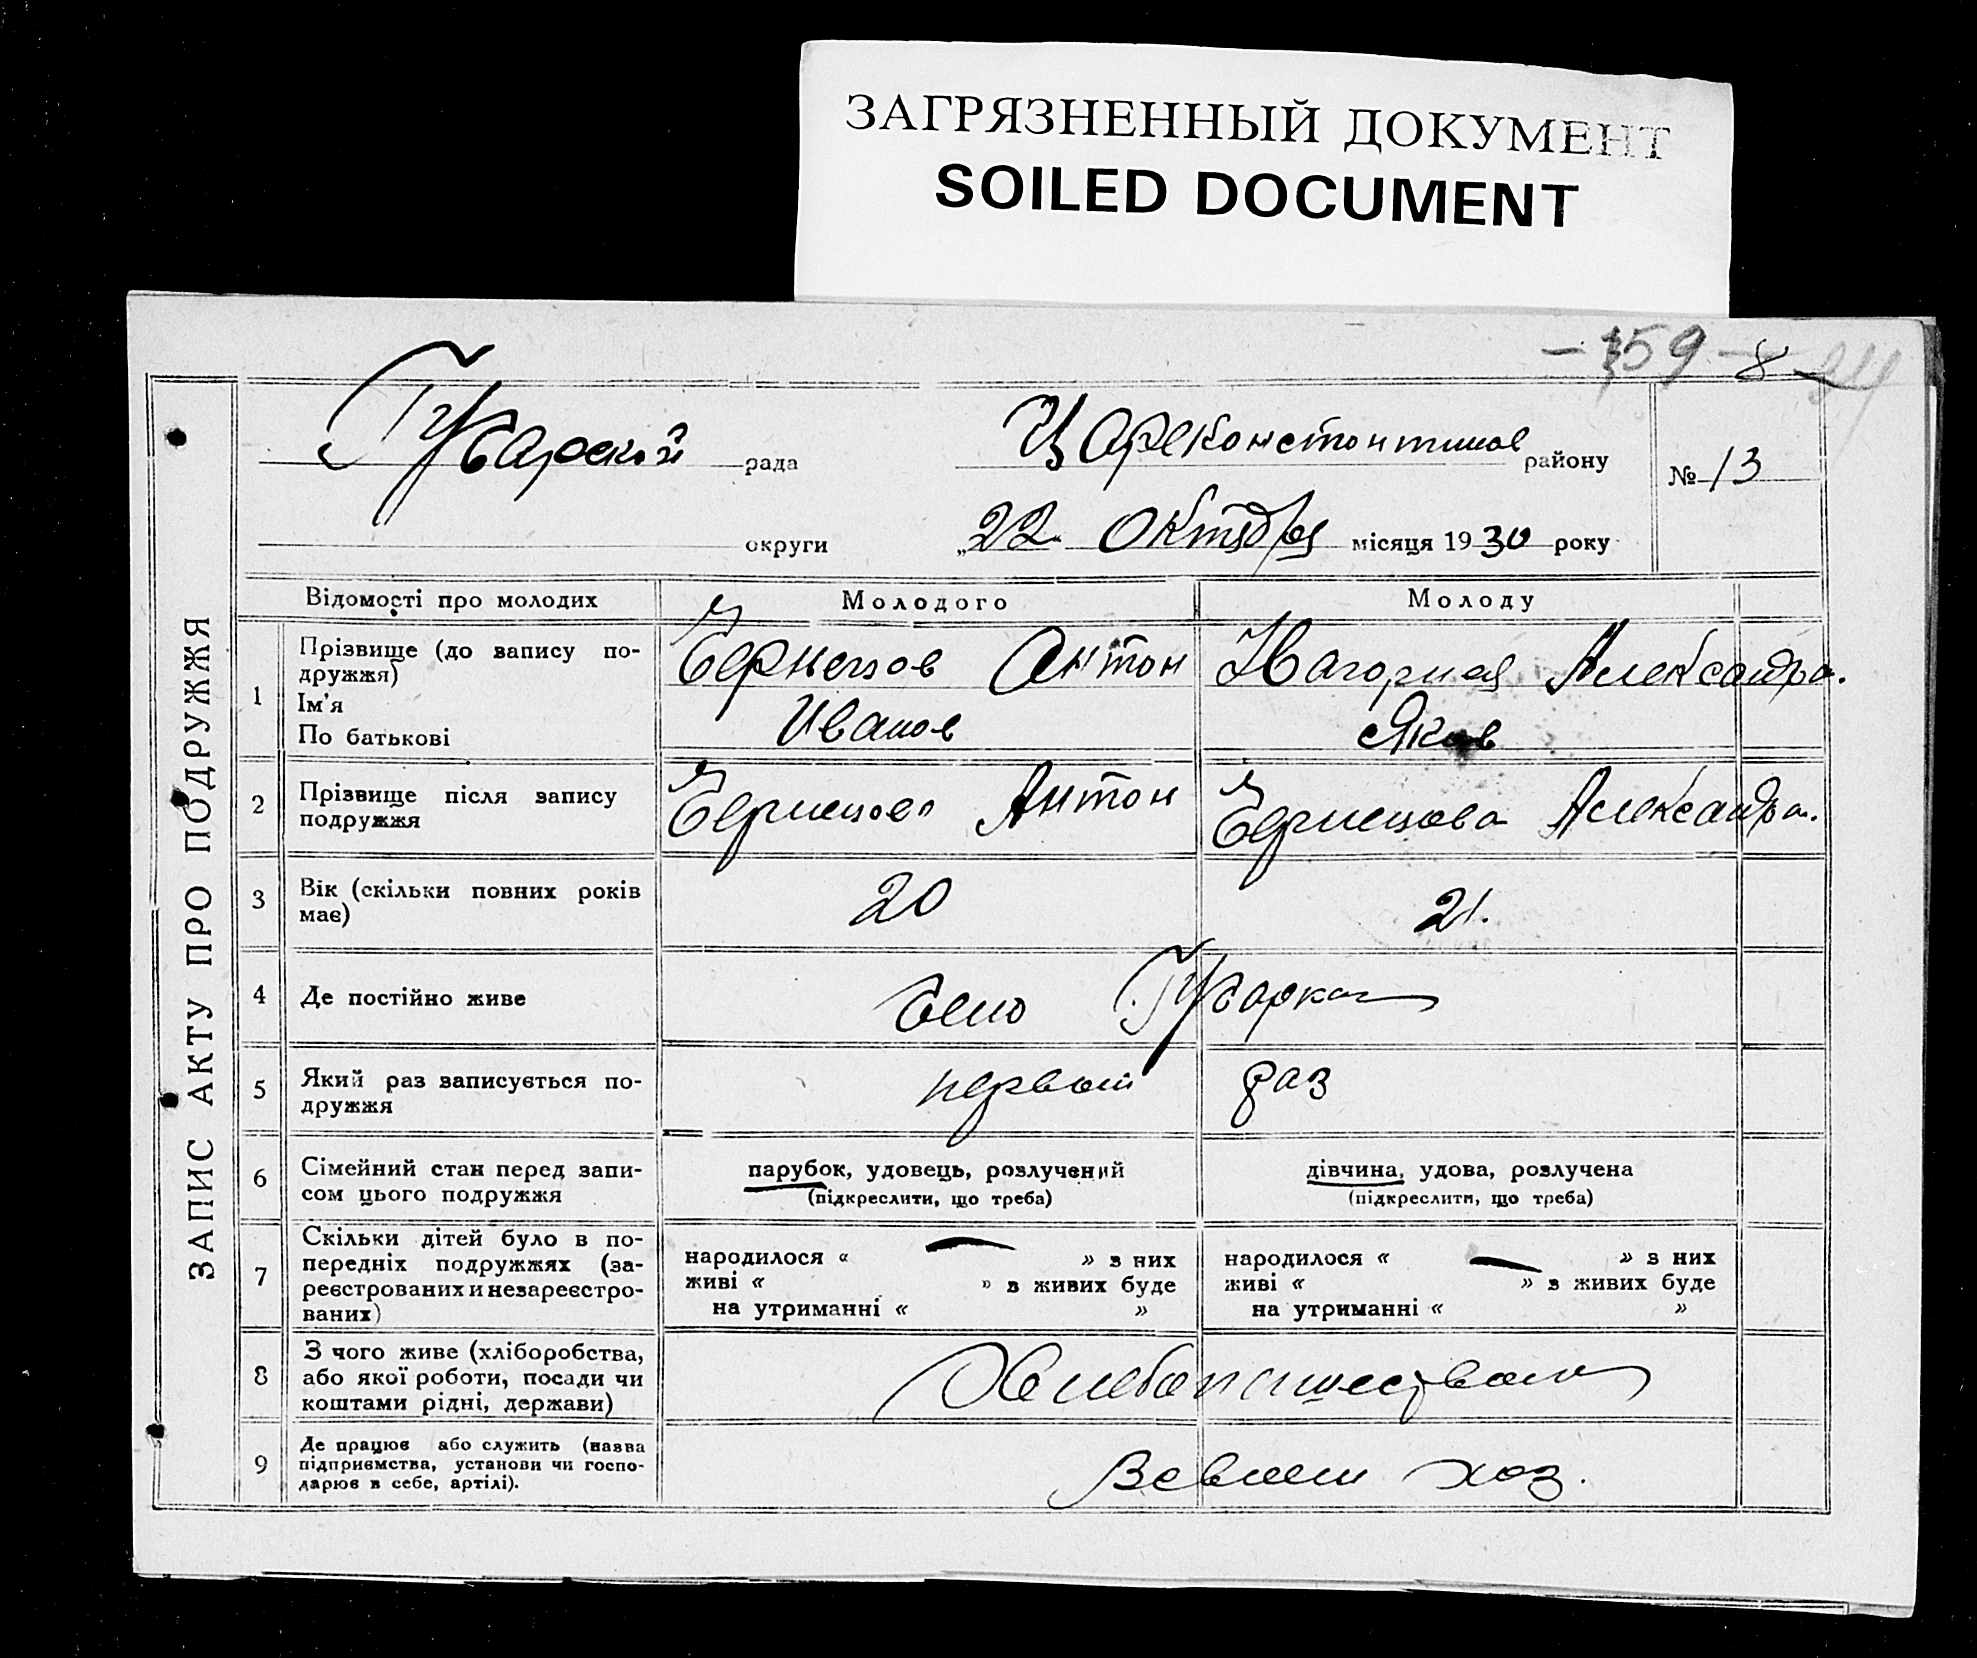 ЗАГРЯЗНЕННЫЙ ДОКУМЕНТ
SOILED DOCUMENT
159 8
ЗАПИС АКТУ ПРО ПОДРУЖЖЯ
Гусарской рада Цареконстонтинов району № 13
округи „22 Октября місяця 1930 року
Відомості про молодих Молодого Молоду
1 Прізвище (до запису по-
дружжя)
Ім'я
По батькові
Антон
Иванов
Нагорная Александра.
Яков
2 Прізвище після запису
подружжя
Антон
Александра.
3 Вік (скільки повних років
має)
20 21.
4 Де постійно живе
Село
5 Який раз записується по-
дружжя
первый раз
6 Сімейний стан перед запи-
сом цього подружжя
парубок, удовець, розлучений
(підкреслити, що треба)
дівчина, удова, розлучена
(підкреслити, що треба)
7 Скільки дітей було в по-
передніх подружжях (за-
реєстрованих и незареєстро-
ваних)
народилося « — » з них
живі « » з живих буде
на утриманні « »
народилося « — » з них
живі « » з живих буде
на утриманні « »
8 З чого живе (хліборобства,
або якої роботи, посади чи
коштами рідні, держави)
9 Де працює або служить (назва
підприємства, установи чи госпо-
дарює в себе, артілі).
хоз.